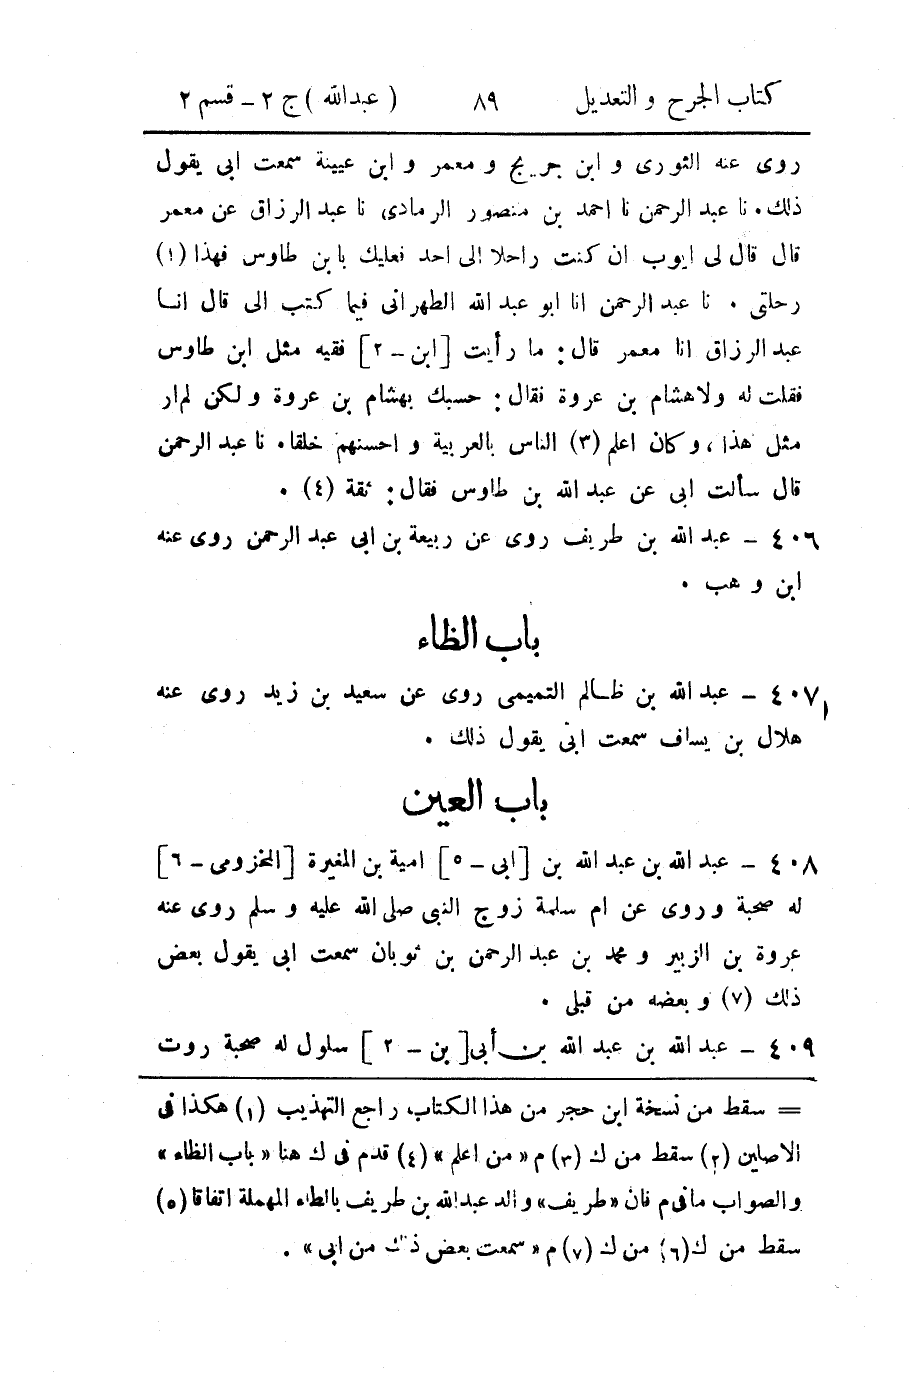 كتاب الجرح و التعديل ٨٩ ( عبدالله ) ج ٢ – قسم ٢
روى عنه الثورى و ابن جريج و معمر و ابن عيينة سمعت ابى يقول
ذلك . نا عبد الرحمن نا احمد بن منصور الرمادى نا عبد الرزاق عن معمر
قال قال لى ايوب ان كنت راحلا الى احد فعليك بابن طاوس فهذا (١)
رحلتى . نا عبد الرحمن انا ابو عبد الله الطهرانى فيما كتب الى قال انـا
عبد الرزاق انا معمر قال : ما رأيت [ابن – ٢] فقيه مثل ابن طاوس
فقلت له ولاهشام بن عروة فقال : حسبك بهشام بن عروة و لكن لم ار
مثل هذا ، و كان اعلم (٣) الناس بالعربية و احسنهم خلقا . نا عبد الرحمن
قال سألت ابى عن عبد الله بن طاوس فقال : ثقة (٤) .
٤٠٦ – عبد الله بن طريف روى عن ربيعة بن ابى عبد الرحمن روى عنه
ابن و هب .
باب الظاء
٤٠٧ – عبد الله بن ظـالم التميمى روى عن سعيد بن زيد روى عنه
هلال بن يساف سمعت ابى يقول ذلك .
باب العين
٤٠٨ – عبد الله بن عبد الله بن [ابى – ٥] امية بن المغيرة [المخزومى – ٦]
له صحبة و روى عن ام سلمة زوج النبى صلى الله عليه و سلم روى عنه
عروة بن الزبير و محمد بن عبد الرحمن بن ثوبان سمعت ابى يقول بعض
ذلك (٧) و بعضه من قبلى .
٤٠٩ – عبد الله بن عبد الله بن أبى [بن – ٢ ] سلول له صحبة روت
= سقط من نسخة ابن حجر من هذا الكتاب، راجع التهذيب (١) هكذا فى
الاصلين (٢) سقط من ك (٣) م « من اعلم » (٤) قدم فى ك هنا « باب الظاء »
والصواب ما فى م فان « طريف » والد عبدالله بن طريف بالطاء المهملة اتفاقا (٥)
سقط من ك (٦) من ك (٧) م « سمعت بعض ذلك من ابى » .